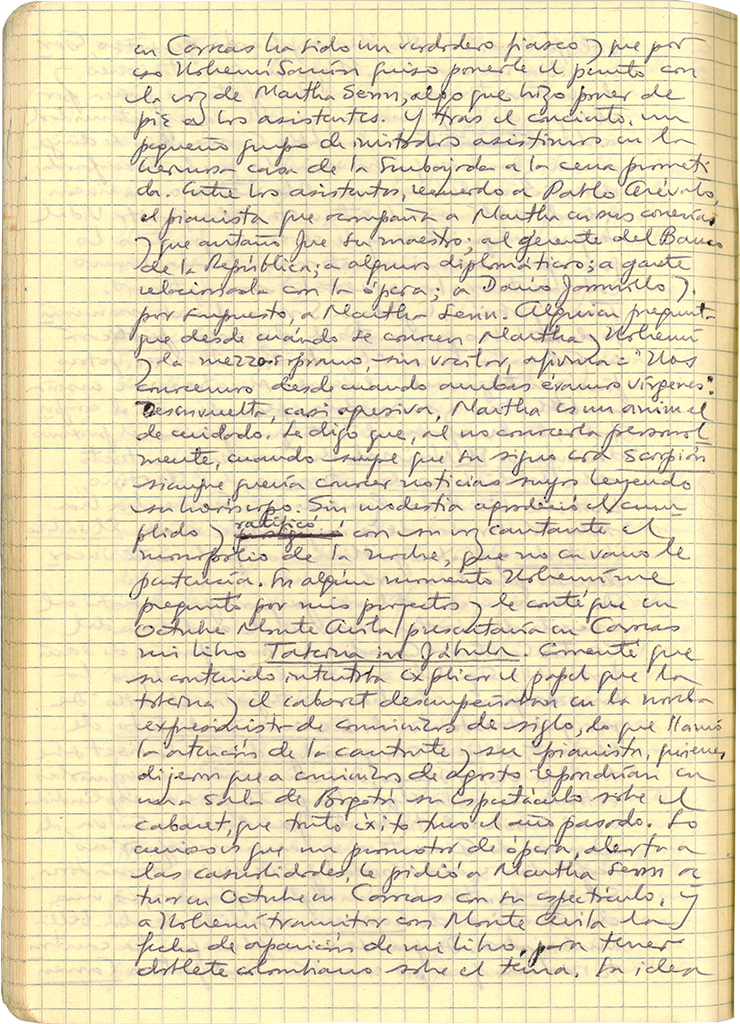 en Caracas ha sido un verdadero fiasco y que por
eso Nohemí Sanín quiso ponerle el punto con
la voz de Martha Senn, algo que hizo poner de
pie a los asistentes. Y tras el concierto, un
pequeño grupo de invitados asistimos en la
hermosa casa de la Embajada a la cena prometi
da. Entre los asistentes, recuerdo a Pablo Arévalo,
el pianista que acompaña a Martha en sus
y que antaño fue su maestro; al gerente del Banco
de la República; a algunos diplomáticos; a gente
relacionada con la ópera; a Darío Jaramillo y,
por supuesto, a Martha Senn. Alguien pregunta
que desde cuándo se conocen Martha y Nohemí
y la mezzosoprano, sin vacilar, : "Nos
conocemos desde cuando ambas éramos vírgenes".
Desenvuelta, casi agresiva, Martha es un animal
de cuidado. Le digo que, al no conocerla personal
mente, cuando supe que su signo era Scorpión
siempre quería conocer noticias suyas leyendo
su horóscopo. Sin modestia agradeció el cum
plido y ratificó con su voz cantante el
monopolio de la noche, que no en vano le
pertenecía. En algún momento Nohemí me
preguntó por mis proyectos y le conté que en
Octubre Monte Avila presentaría en Caracas
mi libro Taberna in Fábula. Comenté que
su contenido intentaba explicar el papel que la
taberna y el cabaret desempeñaban en la novela
expresionista de comienzos de siglo, lo que llamó
la atención de la cantante y su pianista, quienes
dijeron que a comienzos de agosto repondrían en
una sala de Bogotá su espectáculo sobre el
cabaret, que tanto éxito tuvo el año pasado. Lo
curioso es que un promotor de ópera, alerta a
las casualidades, le pidió a Martha Senn ac
tuar en Octubre en Caracas con su espectáculo, y
a Nohemí tramitar con Monte Avila la
fecha de aparición de mi libro, para tener
doblete colombiano sobre el tema. La idea